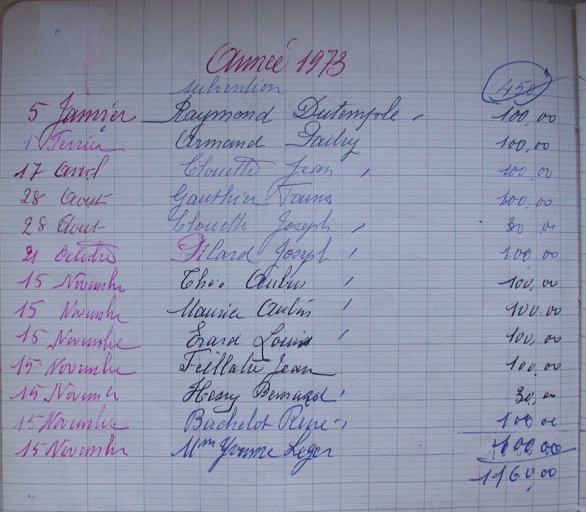 Année 1973
subvention 450
5 Janvier Raymond Dutemple 100,00
1 Fevrier Armand 100,00
17 Avril Clouette Jean 100,00
28 Aout Gauthier 100,00
28 Aout Clouette Joseph 30 00
21 Octobre Pilard Joseph 100,00
15 Novembre Théo Aubin 100,00
15 Novembre Maurice Aubin 100.00
15 Novembre Erard Louis 100,00
15 Novembre Feillatre Jean 100,00
15 Novembre Henry Bernard 30,00
15 Novembre Bachelot René 100 00
15 Novembre Mme Yvonne Leger 100,00
1160,00